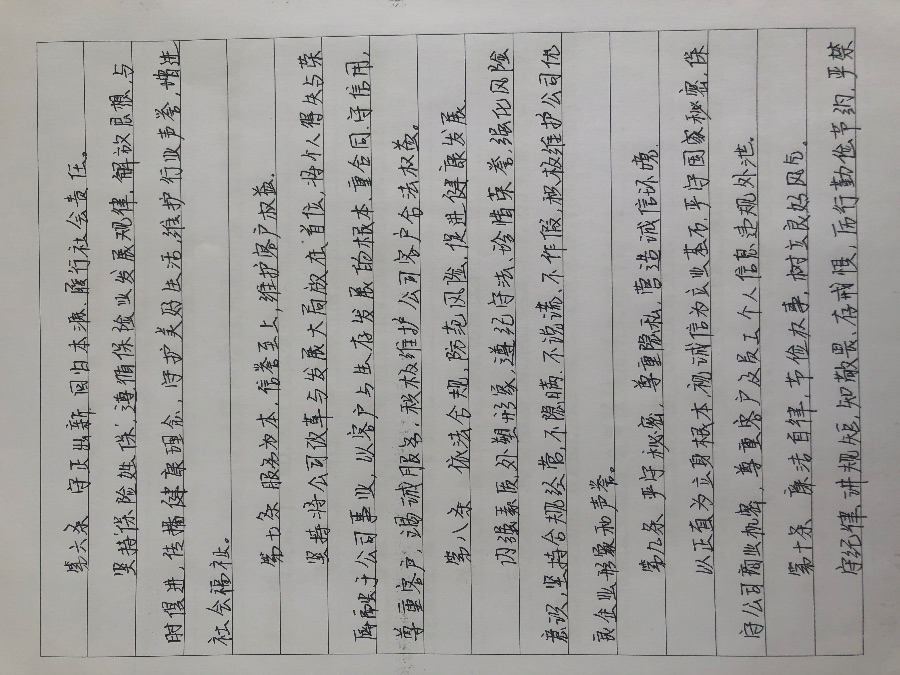 第六条 守正出新 回归本源 履行社会责任。
坚持保险姓保,遵循保险业发展规律,解放思想,与
时俱进,传播健康理念,守护美好生活,维护行业声誉,增进
社会福祉。
第七条 服务为本,信誉至上,维护客户权益。
坚持将公司改革与发展大局放在首位,将个人得失与荣
辱融于公司事业,以客户与生存发展的根本,重合同,守信用,
尊重客户,竭诚服务,积极维护公司客户合法权益。
第八条 依法合规,防范风险,促进健康发展
内强素质,外塑形象,遵纪守法、珍惜荣誉,强化风险
意识,坚持合规经营,不隐瞒、不说谎、不作假,积极维护公司优
良企业形象和声誉。
第九条 严守秘密,尊重隐私,营造诚信环境。
以正直为立身根本,视诚信为立业基石,严守国家秘密,保
守公司商业机密,尊重客户及员工个人信息违规外泄。
第十条 廉洁自律,节俭办事,树立良好风气。
守纪律,讲规矩,知敬畏、存戒惧,厉行勤俭节约,严禁